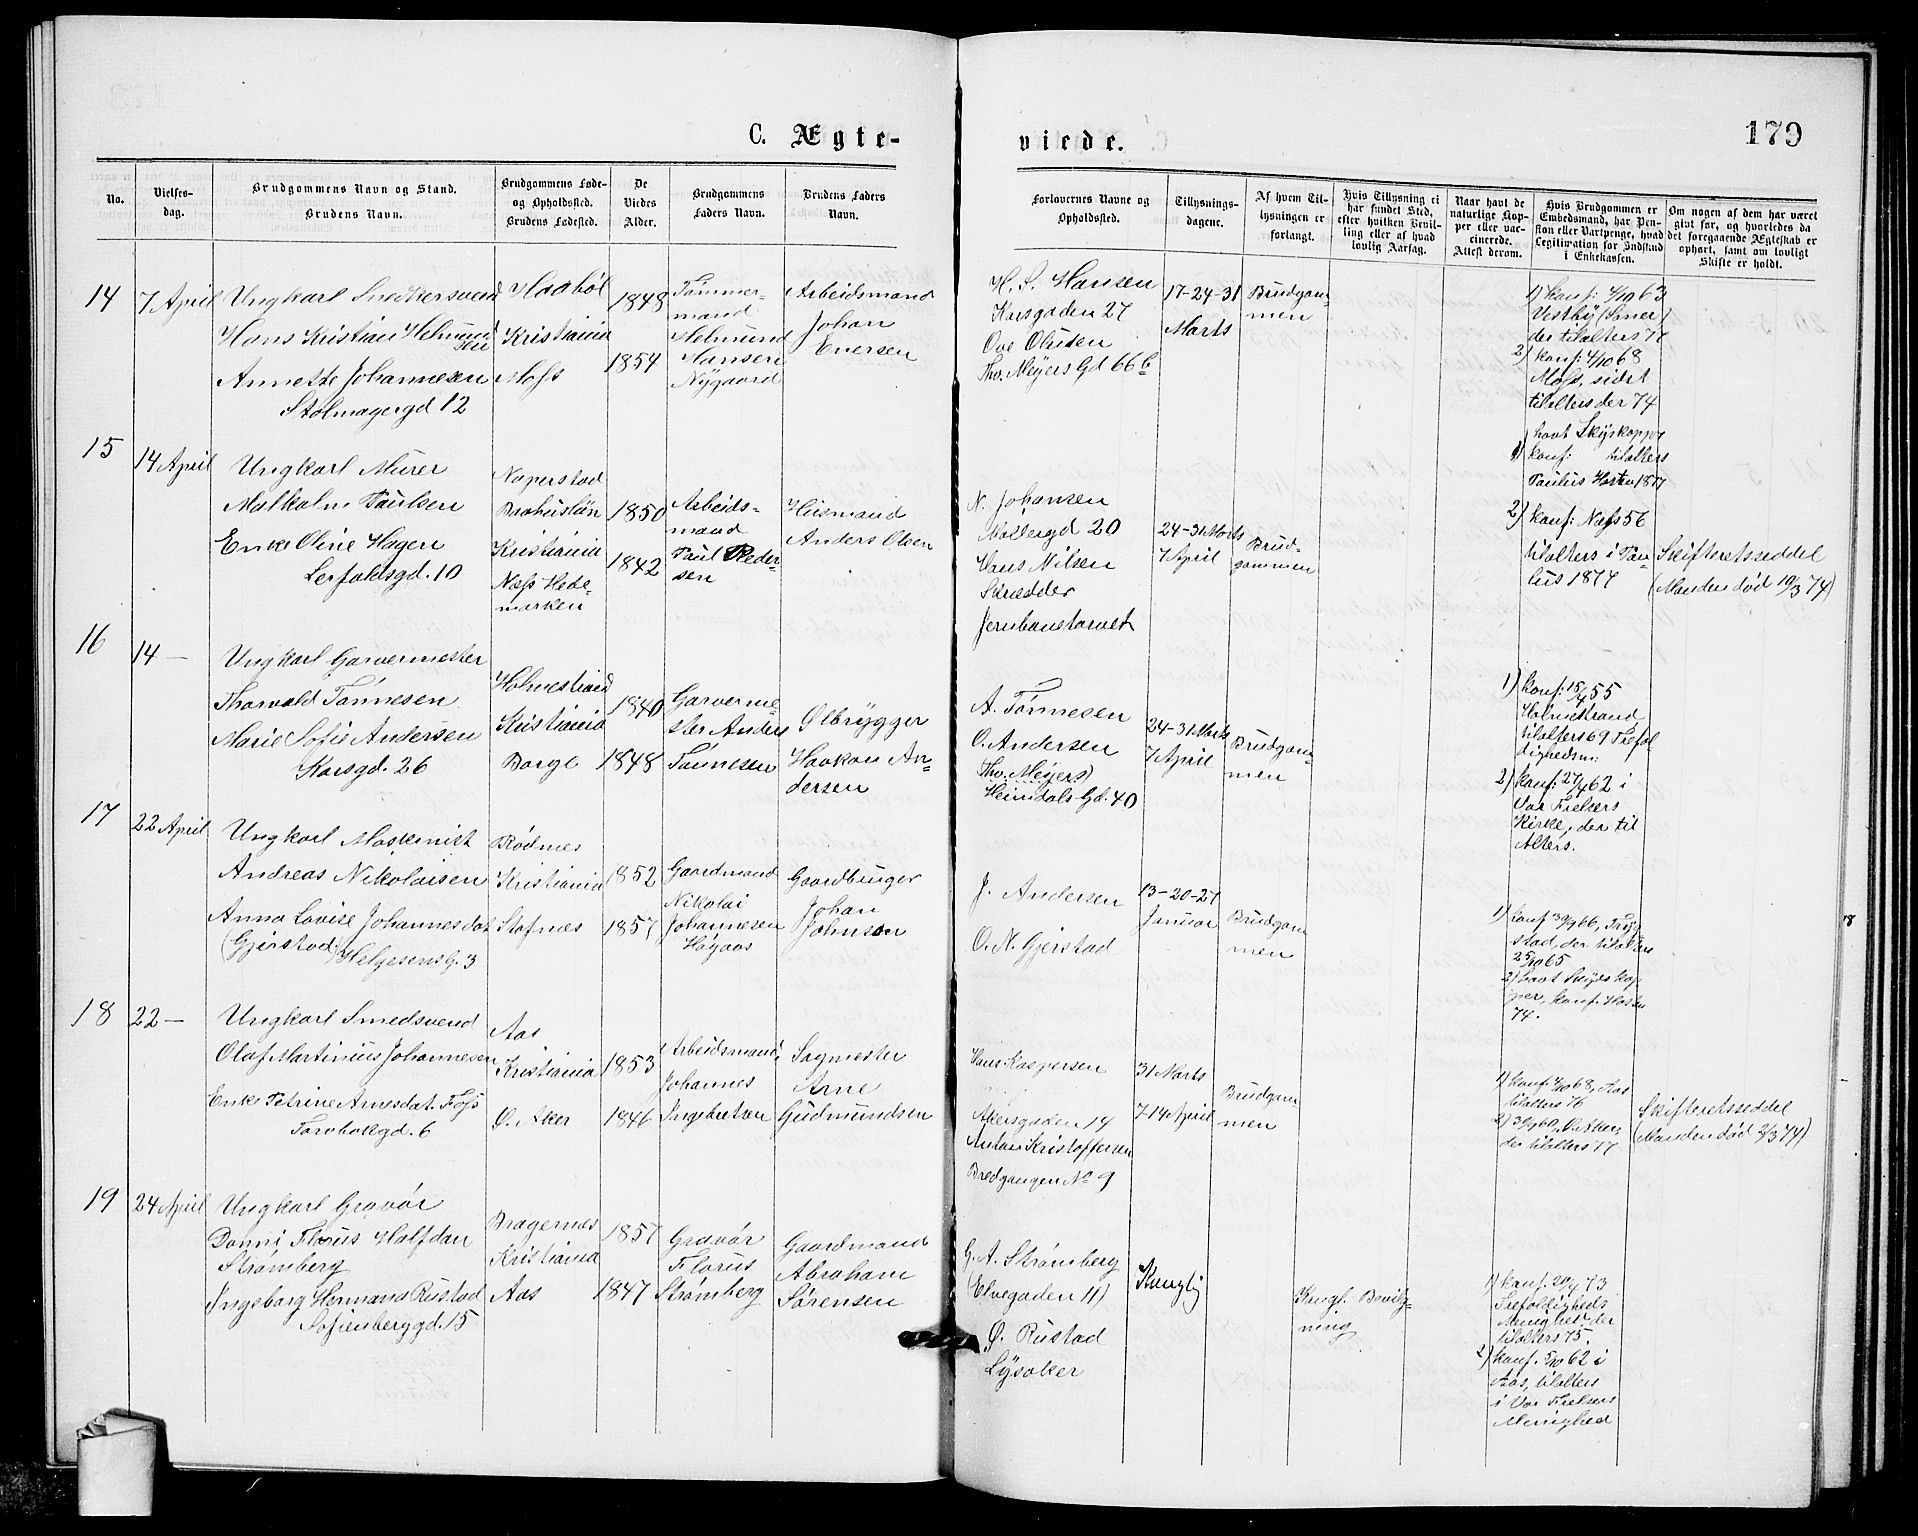 C. Ægte-
viede.
179
No.
Vielses-
dag.
Brudgommens Navn og Stand.
Brudens Navn.
Brudgommens Føde-
og Opholdssted.
Brudens Fødested.
De
Viedes
Alder.
Brudgommens
Faders Navn.
Brudens Faders
Navn.
Forlovernes Navne og
Opholdssted.
Tillysnings-
dagene.
Af hvem Til-
lysningen er
forlangt.
Hvis Tillysning ei
har fundet Sted,
efter hvilken Bevil-
ling eller af hvad
lovlig Aarsag.
Naar havt de
naturlige Kop-
per eller vac-
cinerede.
Attest derom.
Hvis Brudgommen er
Embedsmand, har Pen-
sion eller Vartpenge, hvad
Legitimation for Indskud
i Enkekassen.
Om nogen af dem har været
gift før, og hvorledes da
det foregaaende Ægteskab er
ophørt, samt om lovligt
Skifte er holdt.
14
7 April
Ungkarl Snedkersvend
Hans Kristian Helmund-
sen
Annette Johannesen
Stolmagergd 12
Haabøl
Kristiania
Moss
1848
1854
Tømmer-
mand
Helmund
Hansen
Nygaard
Arbeidsmand
Johan
Enersen
H. S. Hansen
Korsgaden 27
Ove Olsen
Thv. Meyers Gd 66 b
17-24-31
Marts
Brudgom-
men
1) konf: 4/10 63
Vestby (Soner)
der tilalters 77
2) konf: 4/10 68
Moss, sidst
tilalters der 74
15
14 April
Ungkarl Murer
Malkolm Paulsen
Enke Oline Hagen
Lerfoldsgd. 10
Naperstad
Baahuslän
Kristiania
Næss Hede-
marken
1850
1842
Arbeids-
mand
Paul Peder-
sen
Husmand
Anders Olsen
N. Johansen
Møllergd 20
Hans Nilsen
Skrædder
Jernbanetorvet
24-31 Marts
7 April
Brud-
gommen
havt Skyskopper
1) konf: tilalters
Paulus Høsten 1877
2) konf: Næss 56
tilalters i Pau-
lus 1877
Skifteretsseddel
(Manden død 19/3 74)
16
14 —
Ungkarl Garvermester
Thorvald Tønnesen
Marie Sofie Andersen
Korsgd. 26
Holmestrand
Kristiania
Borge
1840
1848
Garverme-
ster Anders
Tønnesen
Ølbrygger
Haakon An-
dersen
A. Tønnesen
O. Andersen
Thv. Meyers)
Heimdals Gd. 40
24-31 Marts
7 April
Brudgom-
men
1) konf: 15/4 55
Holmestrand
tilalters 69 Trefol-
dighedsm:
2) konf: 27/4 62 i
Vor Frelsers
Kirke, der til
Alters.
17
22 April
Ungkarl Maskinist
Andreas Nikolaisen
Anna Lovise Johannesdat
(Gjerstad) Helgesens G. 3
Rødnes
Kristiania
Stafnes
1852
1857
Gaardmand
Nikolai
Johannesen
Høgaas
Gaardbruger
Johan
Johnsen
J. Andersen
O. N. Gjerstad
13-20-27
Januar
Brudgom-
men
1) konf 30/9 66, Trøg-
stad, der tilalters
25/10 65
2) havt Skyds kop-
per, konf. Høsten
74.
18
22 —
Ungkarl Smedsvend
Olaf Martinius Johannesen
Enke Petrine Arnesdat. Foss
Torvbakgd. 6
Aas
Kristiania
Ø. Aker
1853
1846
Arbeidsmand
Johannes
Ingebretsen
Sagmester
Arne
Gudmundsen
Hans Kaspersen
Akersgaden 14
Anton Kristoffersen
Bredgangen No 9
31 Marts
7-14 April
Brudgom-
men
1) konf: 4/10 68, Aas
tilalters 76
2) 30/9 60, V. Aker,
der tilalters 77
Skifteretsseddel
(Manden død 2/3 74)
19
24 April
Ungkarl Gravør
Danni Florus Halfdan
Strømberg
Ingeborg Hermana Rustad
Sofienberggd. 15
Bragernes
Kristiania
Aas
1857
1847
Gravør
Florus
Strømberg
Gaardmand
Abraham
Sørensen
G. A. Strømberg
(Elvegaden 11)
Ø. Rustad
Lysaker
Kongl. Bevilg-
ning
1) konf. 20/4 73
Trefoldigheds
Menighed, der
tilalters 75.
2) konf. 5/10 62 i
Aas, tilalters
i Vor Frelsers
Menighed